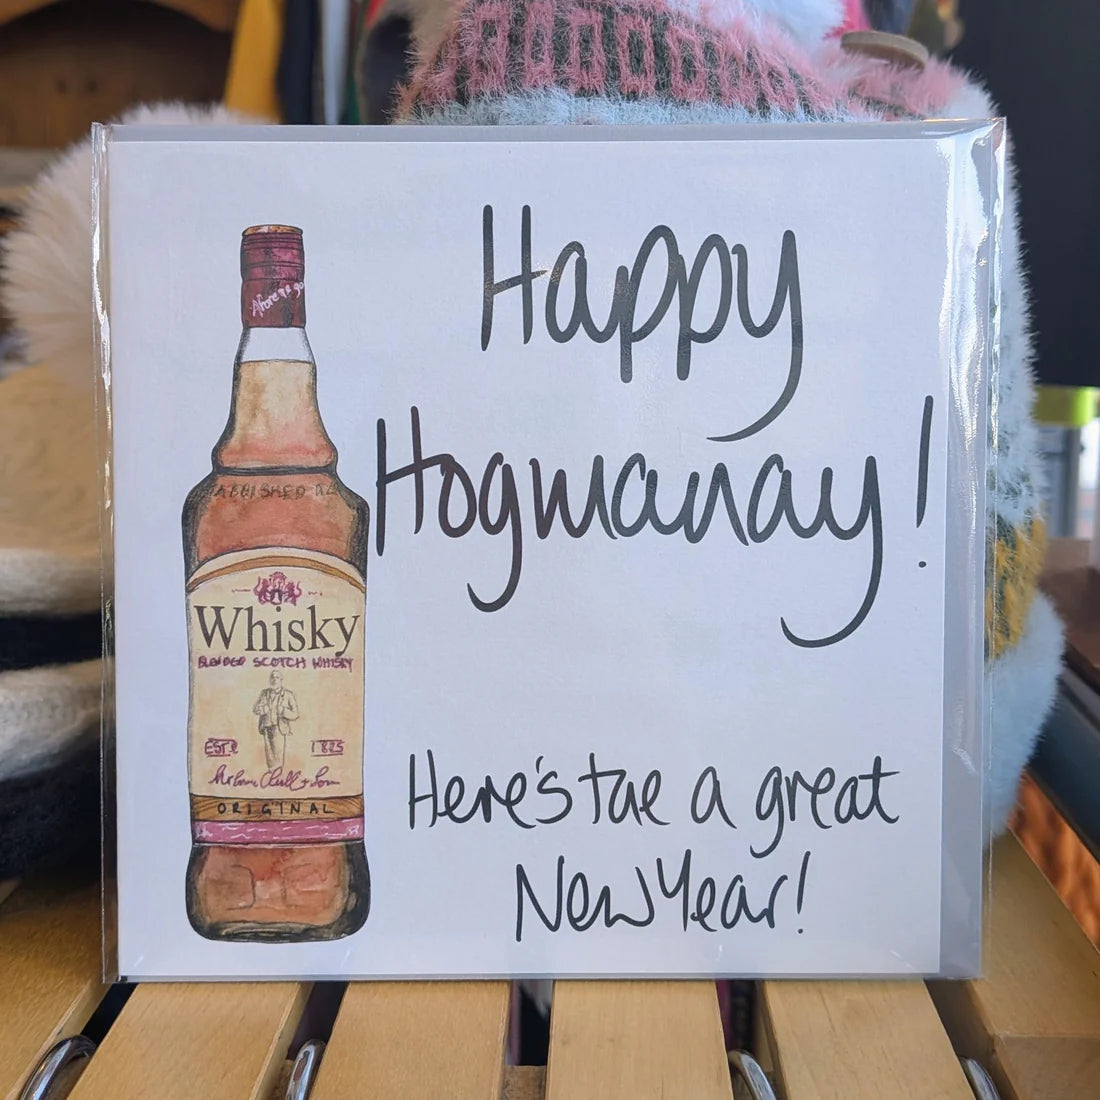 Happy
Hogmanay!
Here's tae a great
New Year!
Whisky
BLENDED SCOTCH WHISKY
ESTD 1825
ORIGINAL